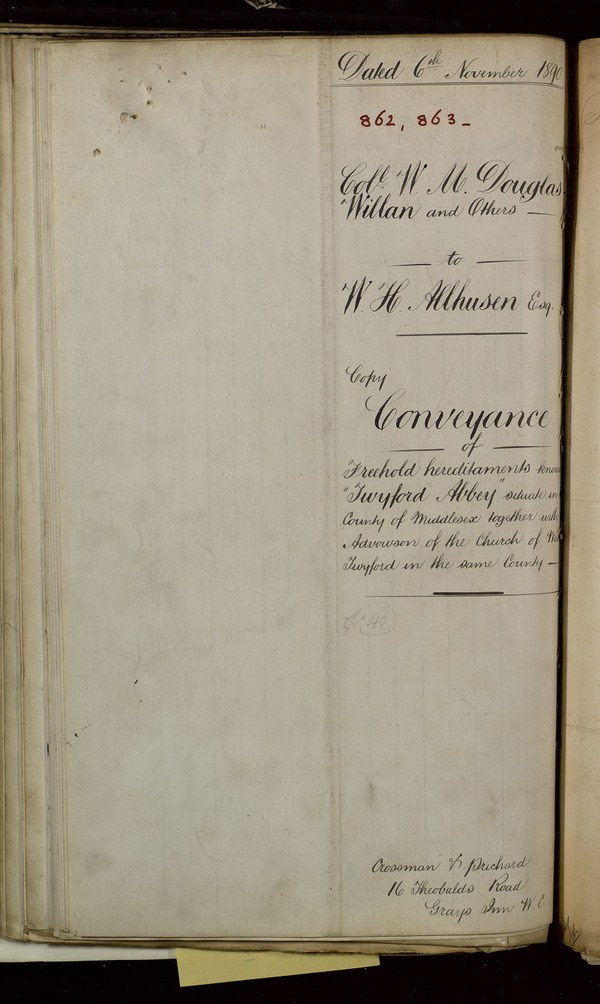 Dated 6th November 1890
862, 863-
Coll. W. M. Douglas
Willan and Others —
— to —
W. H. Allhusen Esq.
Copy
Conveyance
— of —
Freehold hereditaments know
"Twyford Abbey" situate in
County of Middlesex together with
Advowson of the Church of
Twyford in the same County —
Crossman & Prichard
16 Theobalds Road
Grays Inn W.C